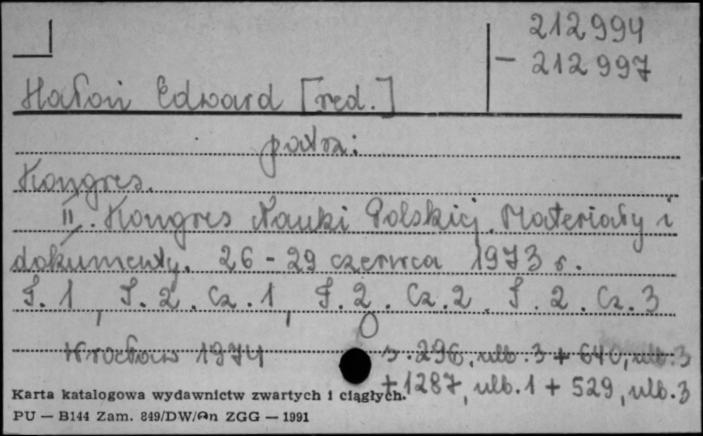 212994
- 212997
Hałoń Edward [red.]
patrz:
Kongres.
II. Kongres Nauki Polskiej. Materiały i
dokumenty. 26 - 29 czerwca 1973 r.
T. 1, T. 2. Cz. 1, T. 2. Cz. 2. T. 2. Cz. 3
Wrocław 1974 s. 296, nlb. 3 + 640, nlb. 3
+ 1287, nlb. 1 + 529, nlb. 3
Karta katalogowa wydawnictw zwartych i ciągłych.
PU — B144 Zam. 849/DW/On ZGG — 1991